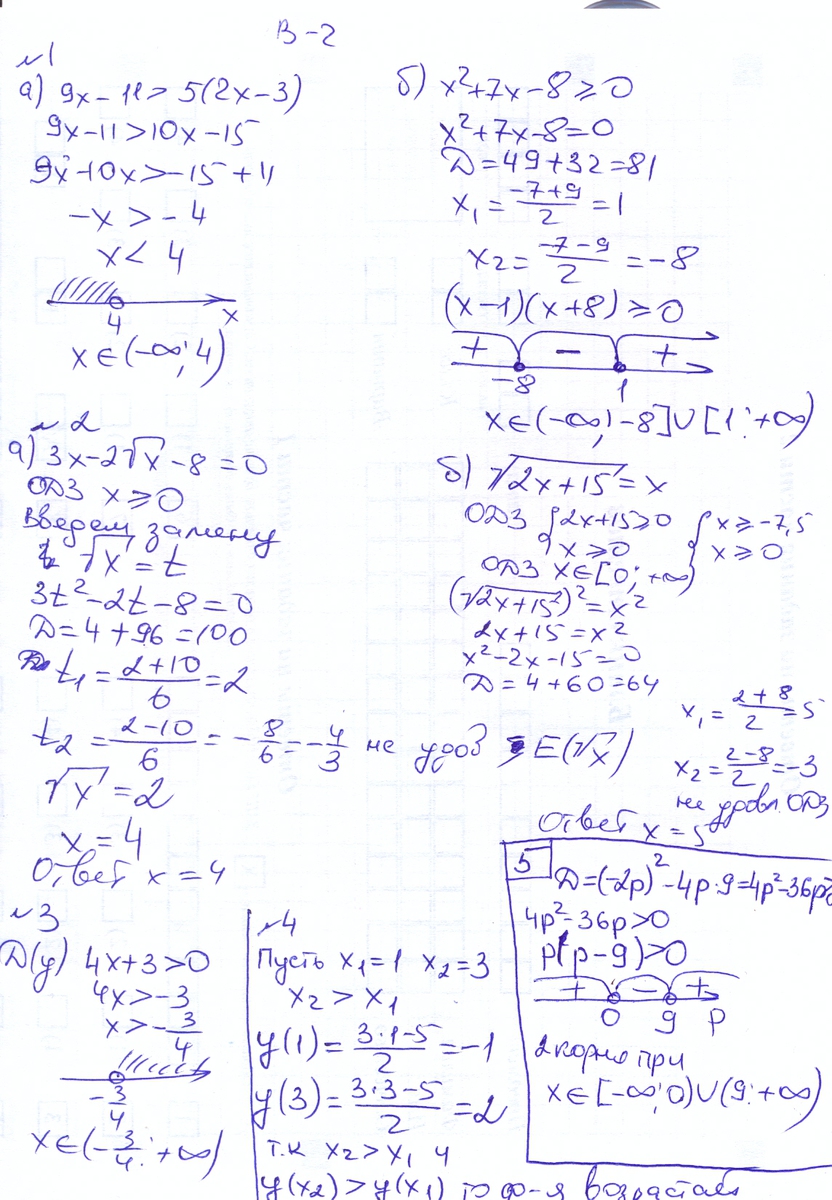 В-2
№1
а) 9x-11 > 5(2x-3)
9x-11 > 10x-15
9x-10x > -15+11
-x > -4
x < 4
4 x
x ∈ (-∞; 4)
б) x²+7x-8 ≥ 0
x²+7x-8 = 0
Д = 49+32 = 81
x₁ = (-7+9)/2 = 1
x₂ = (-7-9)/2 = -8
(x-1)(x+8) ≥ 0
+ - +
-8 1
x ∈ (-∞; -8] ∪ [1; +∞)
№2
а) 3x-2√x-8 = 0
ОДЗ x ≥ 0
Введем замену
√x = t
3t²-2t-8 = 0
Д = 4+96 = 100
t₁ = (2+10)/6 = 2
t₂ = (2-10)/6 = -8/6 = -4/3 не удов E(√x)
√x = 2
x = 4
Ответ x = 4
б) √(2x+15) = x
ОДЗ { 2x+15 ≥ 0 { x ≥ -7,5
x ≥ 0 x ≥ 0
ОДЗ x ∈ [0; +∞)
(√(2x+15))² = x²
2x+15 = x²
x²-2x-15 = 0
Д = 4+60 = 64
x₁ = (2+8)/2 = 5
x₂ = (2-8)/2 = -3
не удовл. ОДЗ
Ответ x = 5
№3
Д(y) 4x+3 > 0
4x > -3
x > -3/4
-3/4
x ∈ (-3/4; +∞)
№4
Пусть x₁ = 1 x₂ = 3
x₂ > x₁
y(1) = (3·1-5)/2 = -1
y(3) = (3·3-5)/2 = 2
т.к x₂ > x₁ и
y(x₂) > y(x₁) то ф-я возрастает
5
Д = (-2p)²-4p·9 = 4p²-36p
4p²-36p > 0
p(p-9) > 0
+ - +
0 9 p
2 корня при
x ∈ [-∞; 0) ∪ (9; +∞)